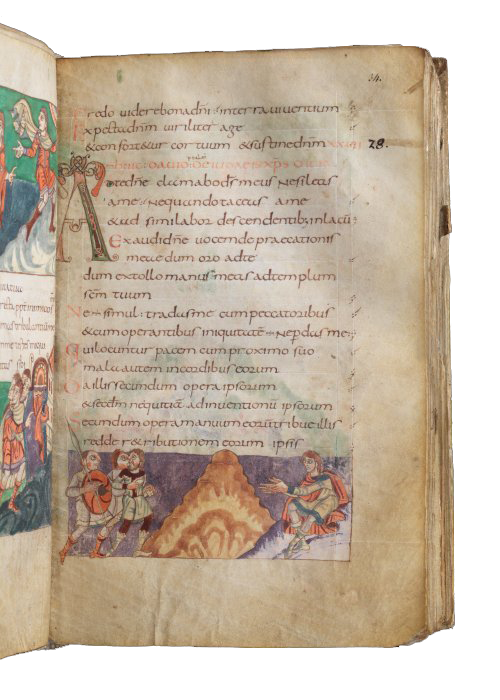 34.
Credo uidere bona dñi · in terra uiuentium
Expecta dñm uiriliter age
& confort&ur cor tuum & sustine dñm XXVII 28.
DAVID DE IUDAEIS XPS
Ad te dñe clamabo ds meus ne sileas
a me · ne quando taceas a me
& ad similabor descendentib; in lacū
Exaudi dñe uocem depræcationis
meae dum oro ad te
dum extollo manus meas ad templum
scm̄ tuum
Ne simul tradas me cum peccatoribus
& cum operantibus iniquitatē ne perdas me
Qui locuntur pacem cum proximo suo
mala autem in cordibus eorum
Da illis secundum opera ipsorum
& secdm nequitiā adinuentionū ipsorum
Secundum opera manuum eorum tribue illis
redde r&ributionem eorum ipsis